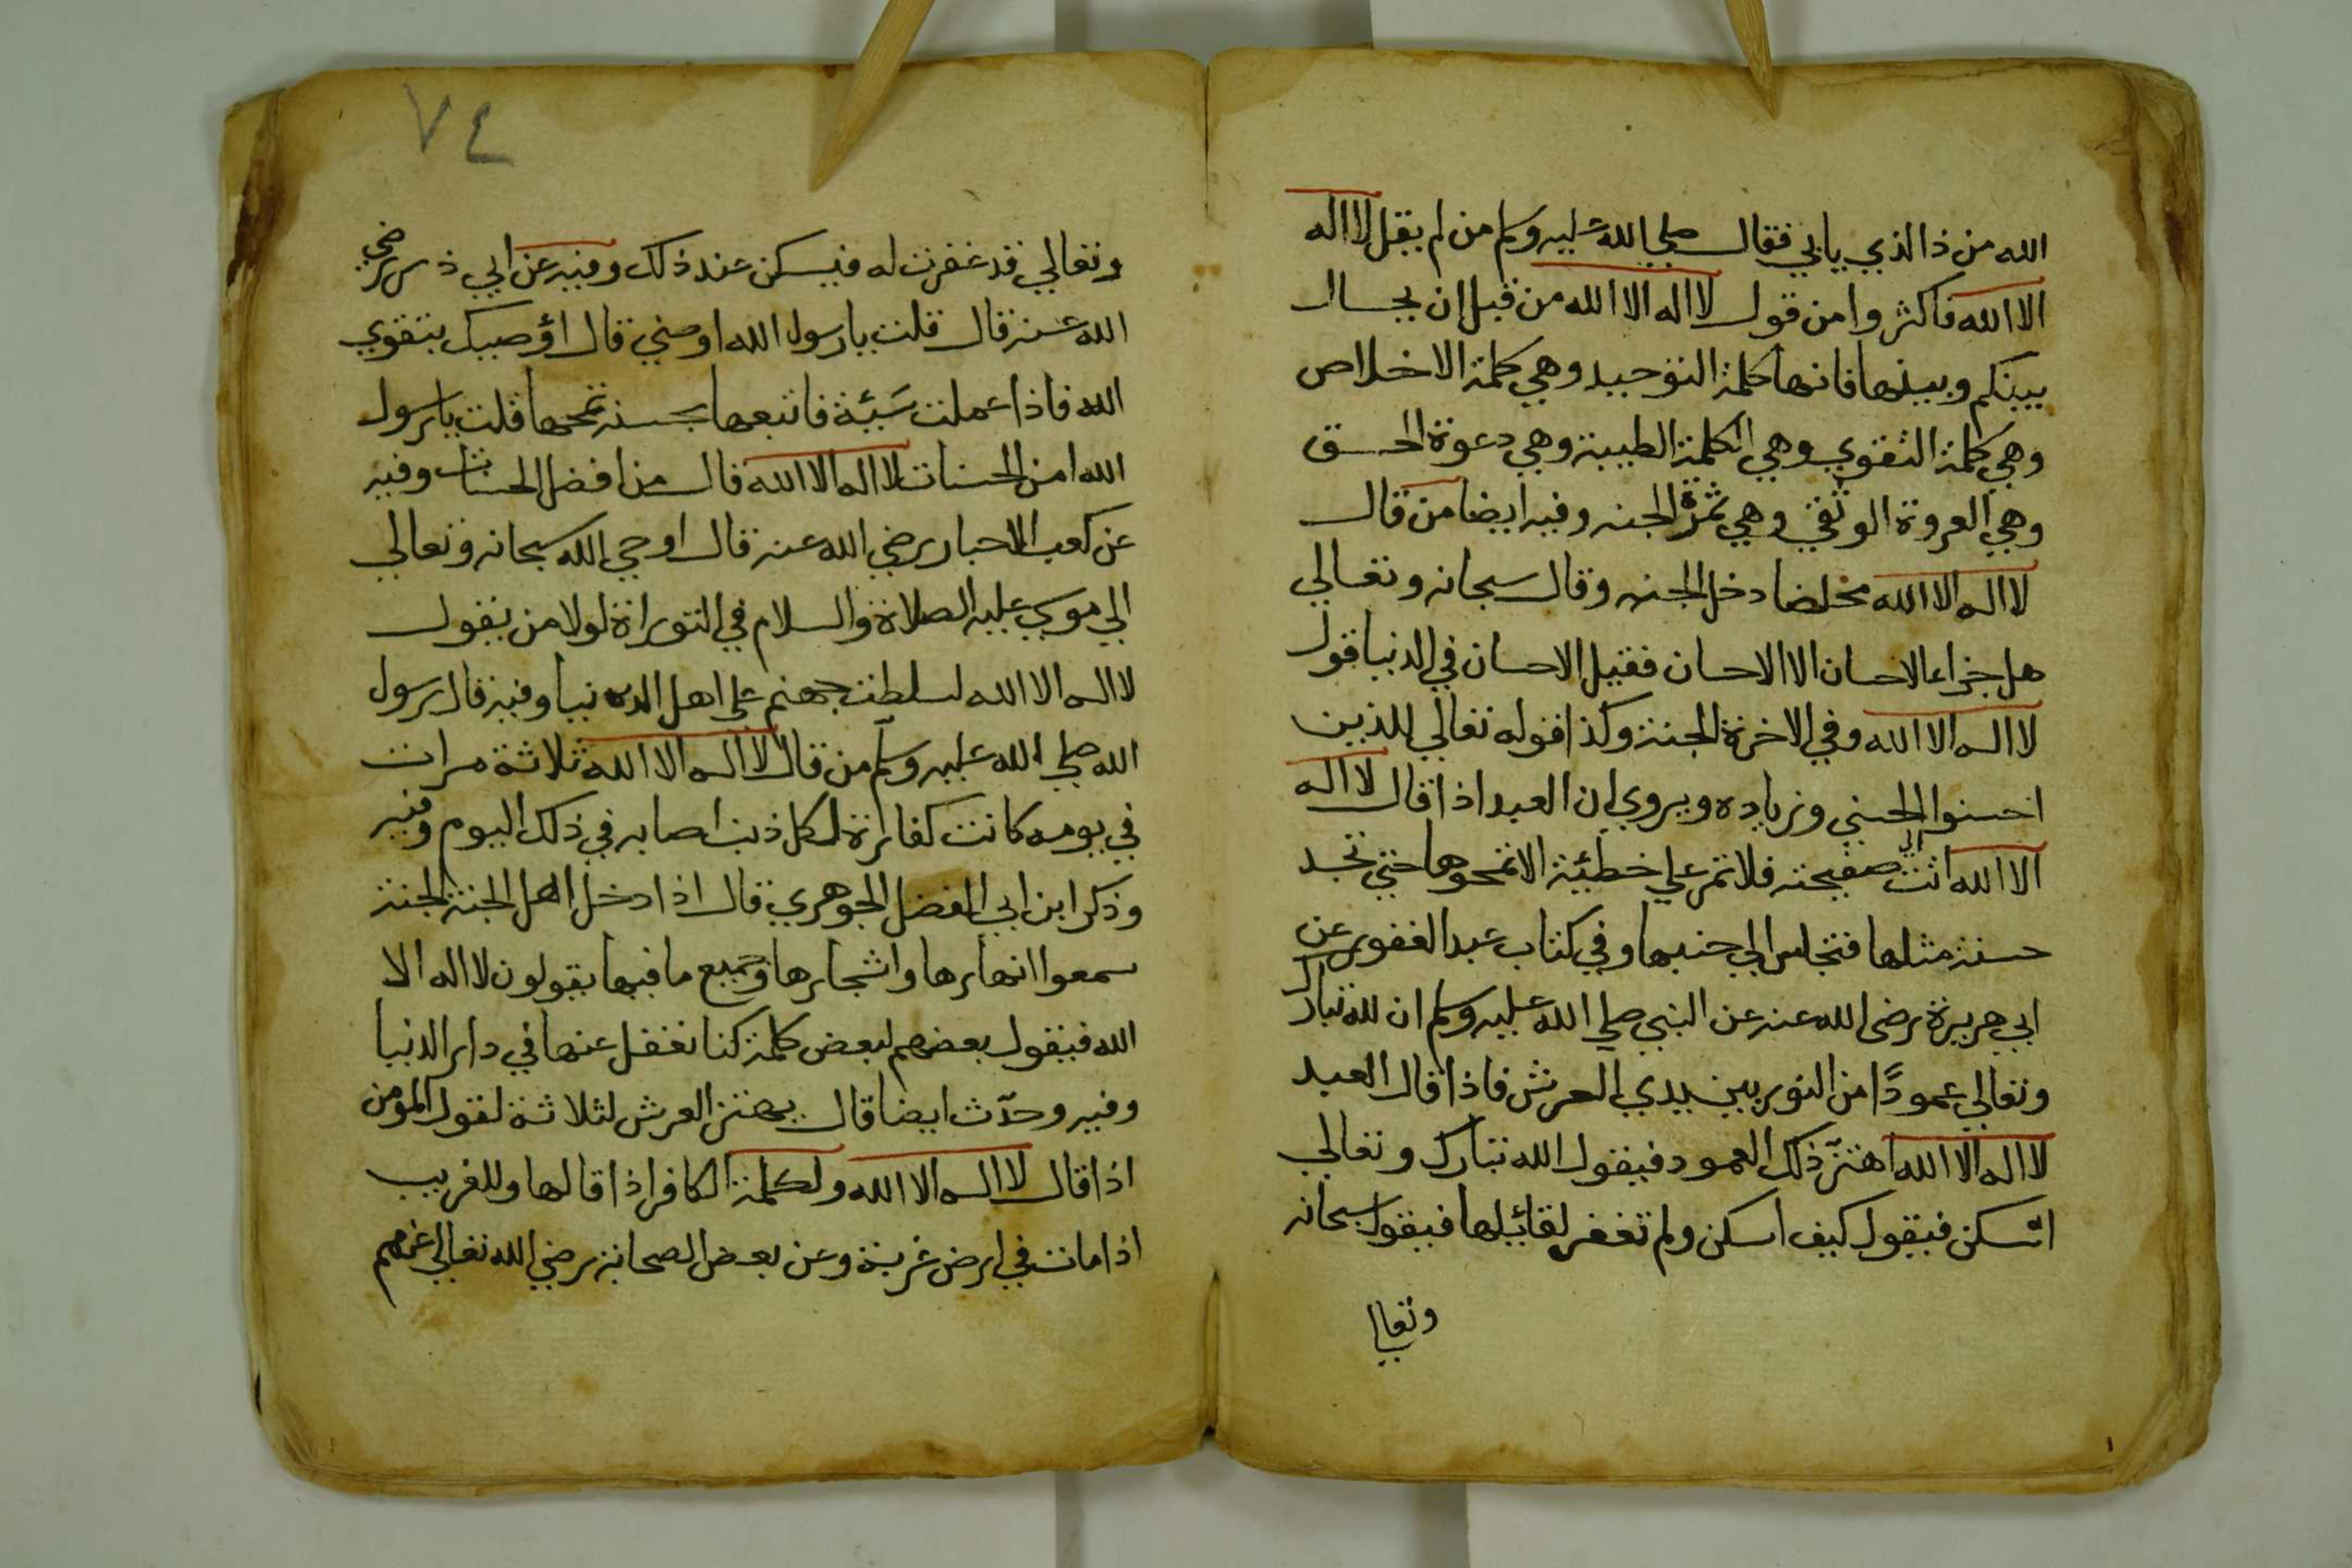 الله من ذا الذي يابي فقال صلي الله عليه وسلم من لم يقل لا اله
الا الله فاكثروا من قول لا اله الا الله من قبل ان يحال
بينكم وبينها فانها كلمة التوحيد وهي كلمة الاخلاص
وهي كلمة التقوي وهي الكلمة الطيبة وهي دعوة الحق
وهي العروة الوثقي وهي ثمرة الجنه وفيه ايضا من قال
لا اله الا الله مخلصا دخل الجنه وقال سبحانه وتعالي
هل جزاء الاحسان الا الاحسان فقيل الاحسان في الدنيا قول
لا اله الا الله وفي الاخرة الجنة وكذا قوله تعالي للذين
احسنوا الحسني وزياده ويروي ان العبد اذا قال لا اله
الا الله اتت الي صفيحته فلا تمر علي خطيئة الا تمحوها حتي تجد
حسنة مثلها فتجلس الي جنبها وفي كتاب عبد الغفور عن
ابي هريرة رضي الله عنه عن النبي صلي الله عليه وسلم ان لله تبارك
وتعالي عمودًا من النور بين يدي العرش فاذا قال العبد
لا اله الا الله اهتز ذلك العمود فيقول الله تبارك وتعالي
اسكن فيقول كيف اسكن ولم تغفر لقائلها فيقول سبحانه
وتعالي
٧٤
وتعالي قد غفرت له فيسكن عند ذلك وفيه عن ابي ذر رضي
الله عنه قال قلت يا رسول الله اوصني قال اؤصيك بتقوي
الله فاذا عملت سَيئة فاتبعها بحسنة تمحها قلت يا رسول
الله امن الحسنات لا اله الا الله قال من افضل الحسنات وفيه
عن كعب الاحبار رضي الله عنه قال اوحي الله سبحانه وتعالي
الي موسي عليه الصلاة والسلام في التوراة لولا من يقول
لا اله الا الله لسلطت جهنم علي اهل الدنيا وفيه قال رسول
الله صلي الله عليه وسلم من قال لا اله الا الله ثلاثة مرات
في يومه كانت كفارة لكل ذنب اصابه في ذلك اليوم وفيه
وذكر ابن ابي الفضل الجوهري قال اذا دخل اهل الجنة الجنة
سمعوا انهارها واشجارها وجميع ما فيها يقولون لا اله الا
الله فيقول بعضهم لبعض كلمة كنا نغفل عنها في دار الدنيا
وفيه وحدّث ايضا قال يهتز العرش لثلاثة لقول المؤمن
اذا قال لا اله الا الله ولكلمة الكافر اذا قالها وللغريب
اذا مات في ارض غربة وعن بعض الصحابة رضي الله تعالي عنهم